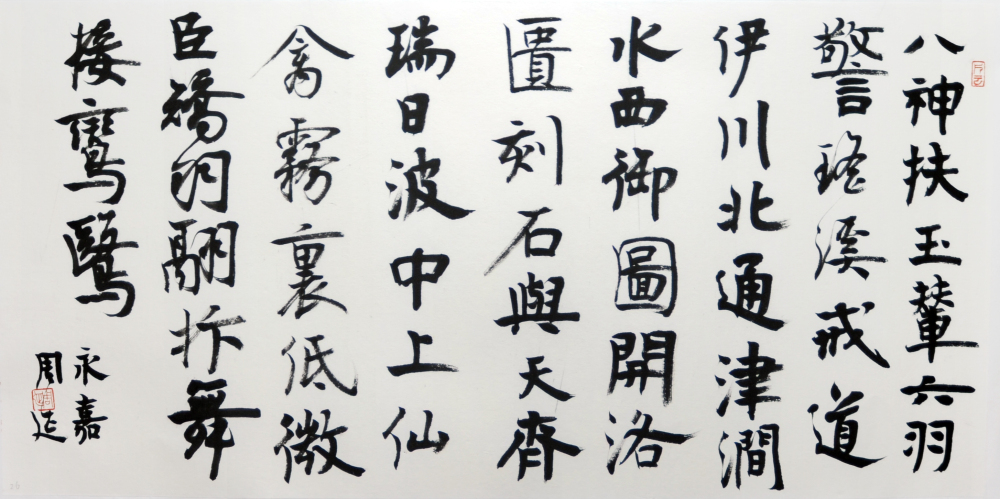 八神扶玉輦六羽
警瑤溪戒道
伊川北通津澗
水西御圖開洛
匱刻石與天齊
瑞日波中上仙
禽霧裏低微
臣矯羽翮抃舞
接鸞鷖
永嘉
周延